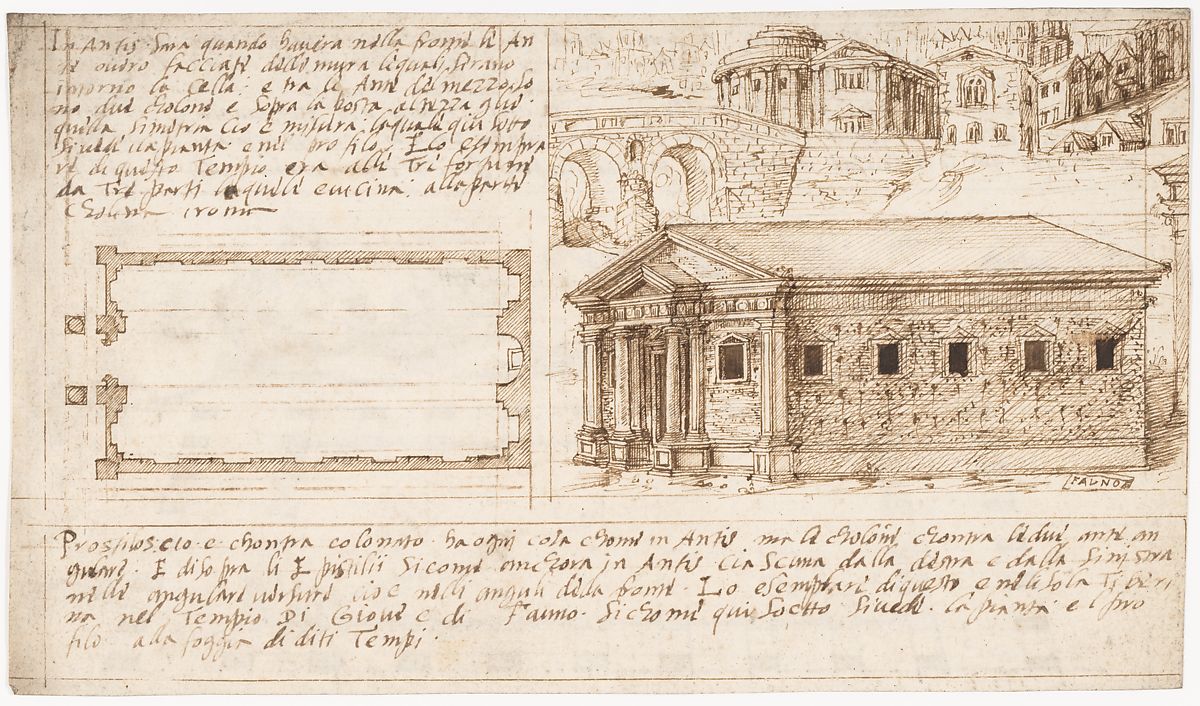 In Antis sara quando havera nella fronte le An
te overo facciate delle mura lequali serano
intorno la Cella e tra le Ante del mezzo so
no due cholone e sopra la posta altezza que
quella simetria cio è misura laquale qui sotto
si vede la pianta e nel profilo. Lo esempla
re di questo Tempio era alle Tre fortune
da Tre parti laquale e vicina alla porta
Cholina
FAVNO
Prostilos cio e chontra colonato ha ogni cosa chome in Antis ma le cholone chontra le due ante an
gulari. E di sopra li E pistilii sicome anchora in Antis ciascuna dalla destra e dalla sinistra
nelle angulare versure cioe nelli anguli della fronte. Lo esemplare di questo e nelisola Tiberi
na nel Tempio Di Giove e di Fauno. Sichome qui Sotto si vede. la pianta e l pro
filo. alla foggia di diti Tempi.